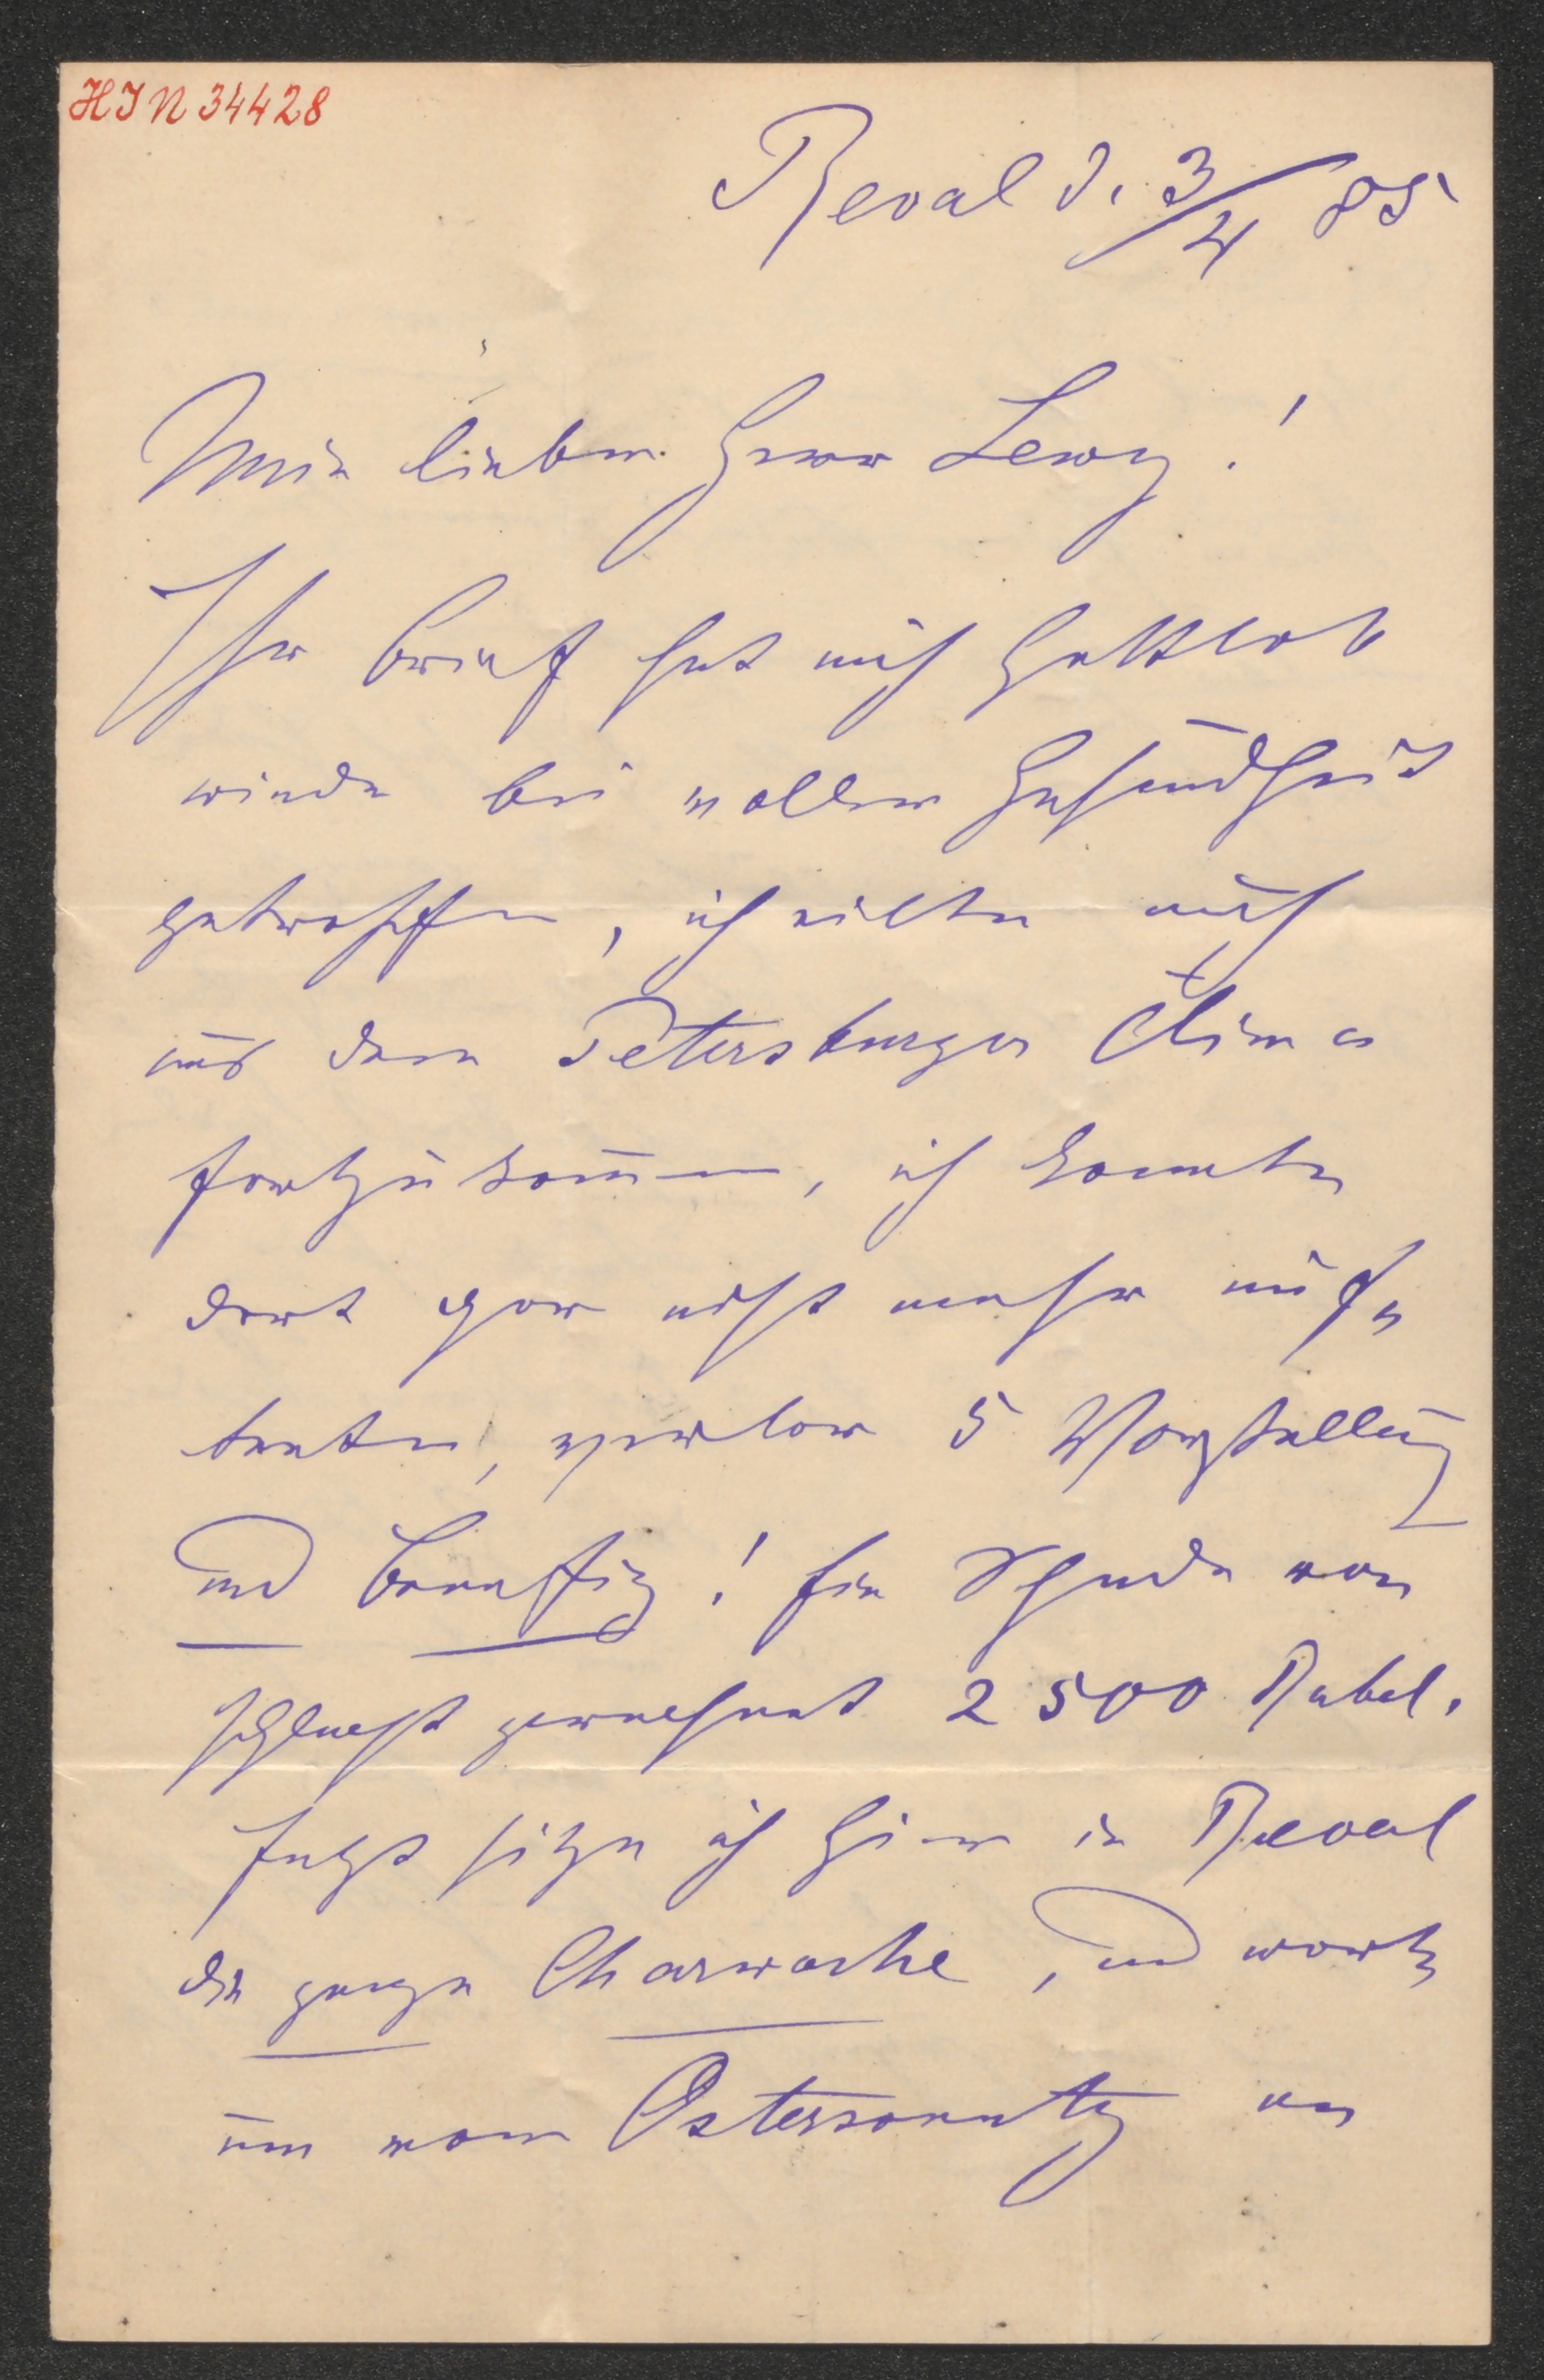 HIN 34428
Reval d. 3/4 85
Mein lieber Herr Lewy!
Ihr Brief hat mich Gottlob
wieder bei voller Gesundheit
getroffen, ich eilte auch
aus dem Petersburger Clima
fortzukom̅en, ich konnte
dort gar nicht mehr auf-
treten, verlor 5 Vorstellung
und Benefiz! ein Schade von
schlecht gerechnet 2500 Rubel.
Jetzt sitze ich hier in Reval
die ganze Charwoche, und warte
um vom Ostersonntg an